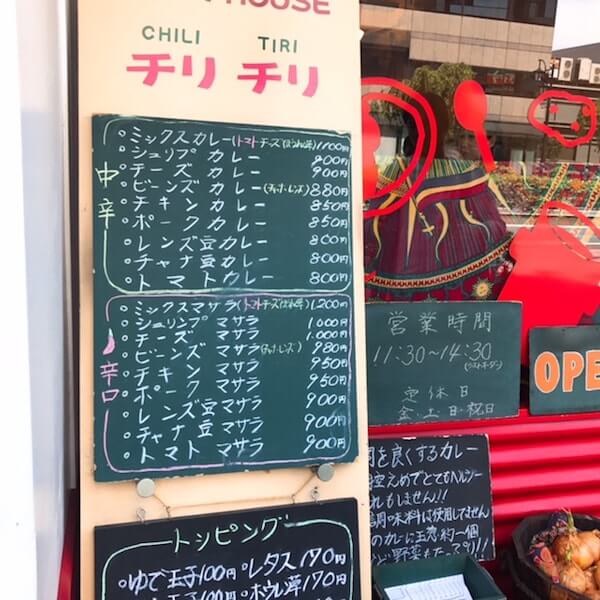 HOUSE
CHILI TIRI
チリ チリ
中辛
・ミックスカレー(トマト チーズ ほうれん草)1100円
・シュリンプ カレー 900円
・チーズ カレー 900円
・ビーンズ カレー(チャナ・レンズ)880円
・チキン カレー 850円
・ポーク カレー 850円
・レンズ豆カレー 800円
・チャナ豆カレー 800円
・トマトカレー 800円
辛口
・ミックスマサラ(トマト チーズ ほうれん草)1,200円
・シュリンプ マサラ 1,000円
・チーズ マサラ 1,000円
・ビーンズ マサラ(チャナ・レンズ)980円
・チキン マサラ 950円
・ポーク マサラ 950円
・レンズ豆マサラ 900円
・チャナ豆マサラ 900円
・トマト マサラ 900円
トッピング
・ゆで玉子100円 ・レタス170円
・ホウレン草170円
営業時間
11:30〜14:30
(ラストオーダー)
定休日
金・土・日・祝日
OPE
を良くするカレー
控えめでとてもヘルシー
れもしません!!
調味料は使用してません
のカレーに玉葱約一個
野菜もたっぷり!!